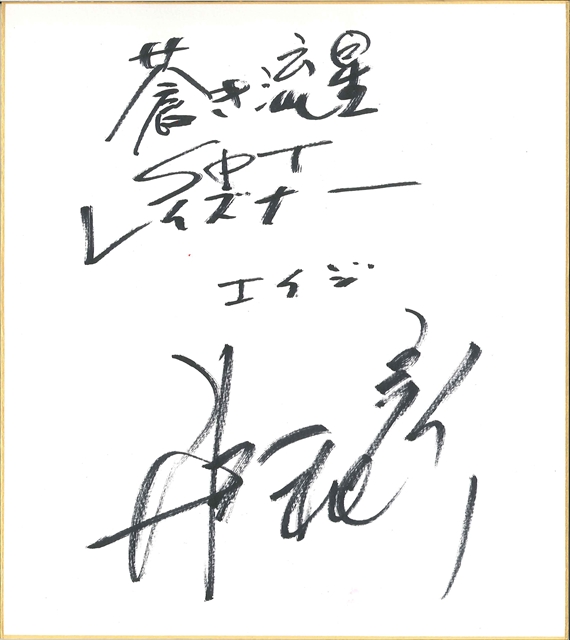 蒼き流星
SPT
レイズナー
エイジ
井上和彦